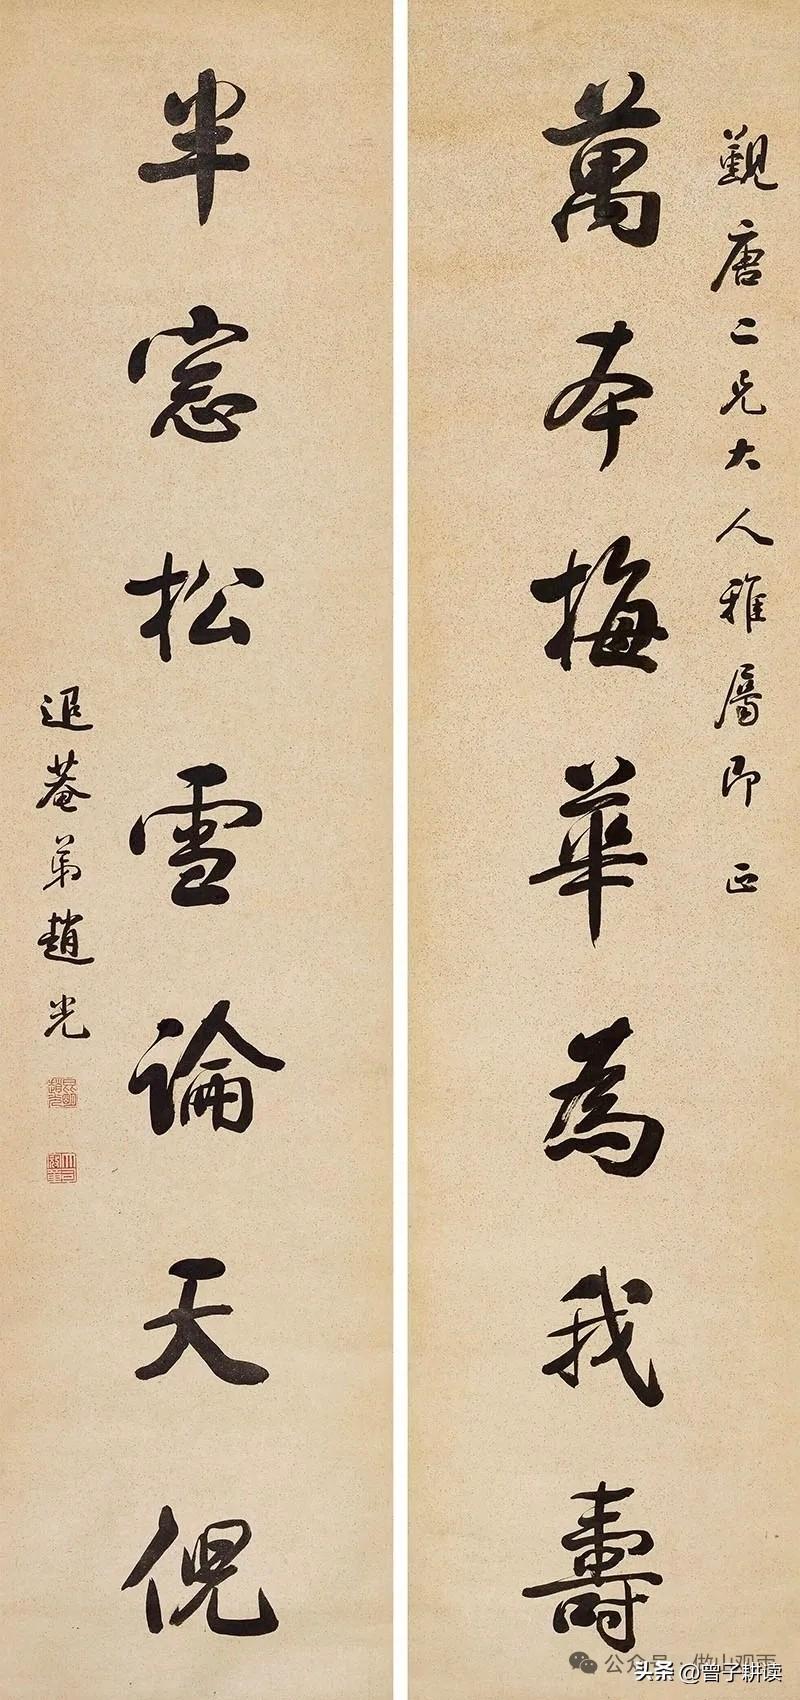 觀唐二兄大人雅屬即正
萬本梅華為我壽
半窓松雪論天倪
退菴弟趙光
公众号：做山观雨
头条 @曾子耕读